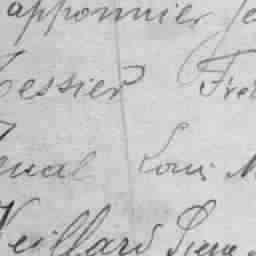 apponnier Je
Tessier Fra
enal Louis M
Veillard Pierre